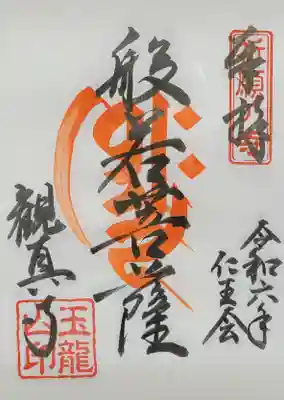 奉拝
令和六年
仁王会
般若菩薩
觀真寺
玉龍